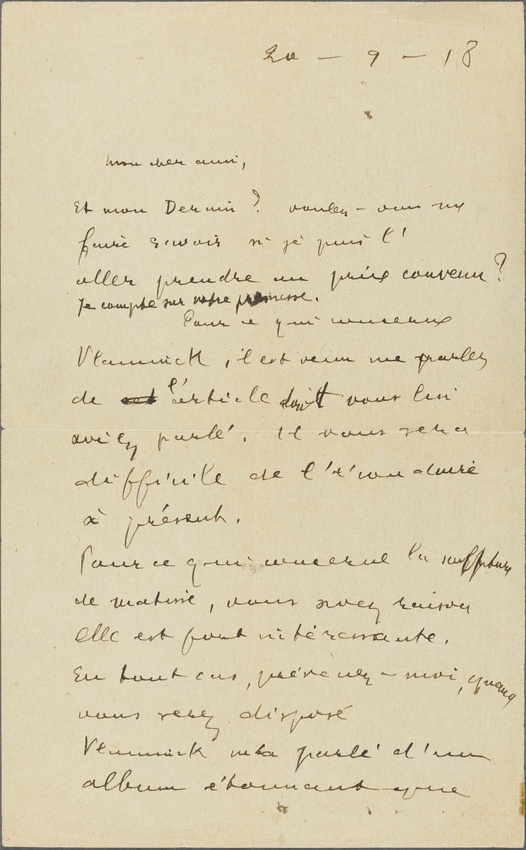 20 - 9 - 18
Mon cher ami,
Et mon Derain? voulez-vous me
faire savoir si je puis l'
aller prendre au prix convenu?
Je compte sur votre promesse.
Pour ce qui concerne
Vlaminck, il est venu me parler
de l'article dont vous lui
aviez parlé. Il vous sera
difficile de l'éconduire
à présent.
Pour ce qui concerne la
de Matisse, vous avez raison
elle est fort intéressante.
En tout cas, prévenez-moi, quand
vous serez disposé
Vlaminck m'a parlé d'un
album étonnant que